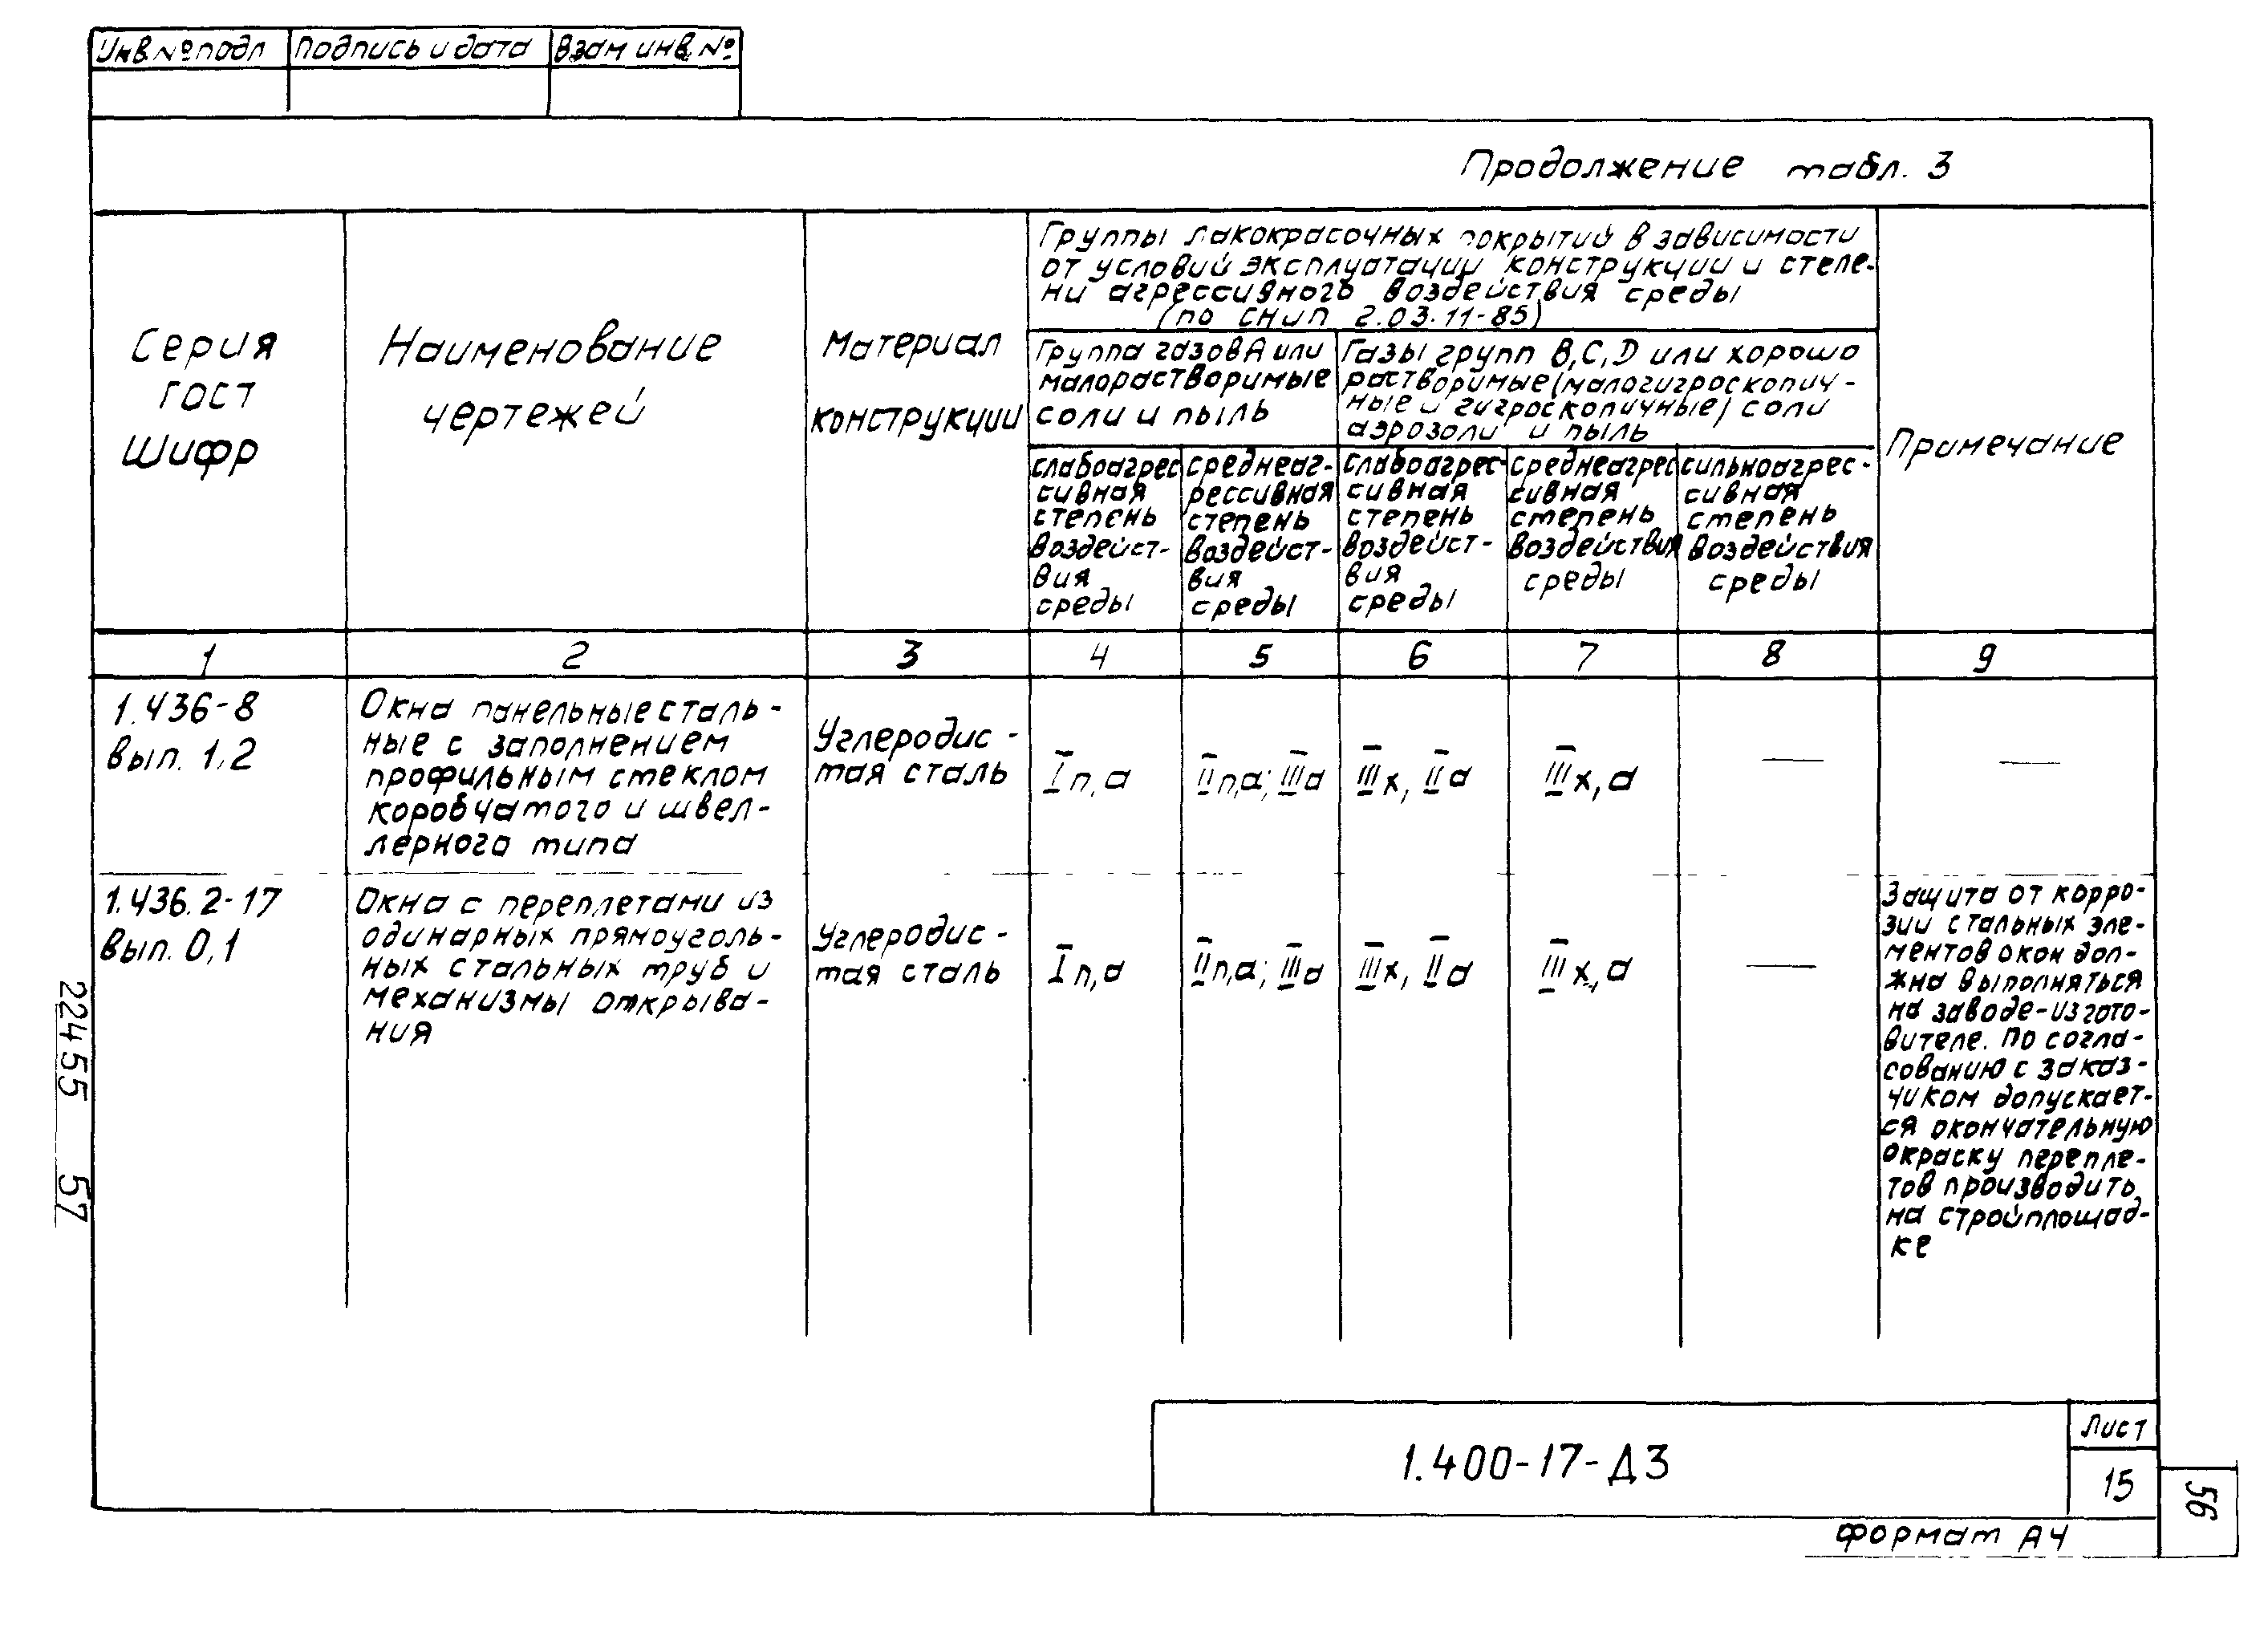 Инв.№подл Подпись и дата Взам инв.№
Продолжение табл. 3
Серия
ГОСТ
Шифр
Наименование
чертежей
Материал
конструкции
Группы лакокрасочных покрытий в зависимости
от условий эксплуатации конструкции и степе-
ни агрессивного воздействия среды
(по СНиП 2.03.11-85)
Группа газов А или
малорастворимые
соли и пыль
Газы групп В,С,D или хорошо
растворимые (малогигроскопич-
ные и гигроскопичные) соли
аэрозоли и пыль
слабоагрес
сивная
степень
воздейст-
вия
среды
среднеаг-
рессивная
степень
воздейст-
вия
среды
слабоагрес-
сивная
степень
воздейст-
вия
среды
среднеагрес
сивная
степень
воздействия
среды
сильноагрес-
сивная
степень
воздействия
среды
Примечание
1 2 3 4 5 6 7 8 9
1.436-8
вып. 1,2
Окна панельные сталь-
ные с заполнением
профильным стеклом
коробчатого и швел-
лерного типа
Углеродис-
тая сталь
Iп,а
IIп,а; IIIа
IIIх, IIа
IIIх,а
—
—
1.436.2-17
вып. 0,1
Окна с переплетами из
одинарных прямоуголь-
ных стальных труб и
механизмы открыва-
ния
Углеродис-
тая сталь
Iп,а
IIп,а; IIIа
IIIх, IIа
IIIх,а
—
Защита от корро-
зии стальных эле-
ментов окон дол-
жна выполняться
на заводе-изгото-
вителе. По согла-
сованию с заказ-
чиком допускает-
ся окончательную
окраску перепле-
тов производить
на стройплощад-
ке
22455 57
1.400-17-Д3
Лист
15
56
Формат А4